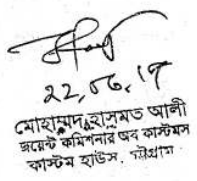 22.06.17
মোহাম্মদ হাসমত আলী
জয়েন্ট কমিশনার অব কাস্টমস
কাস্টম হাউস, চট্টগ্রাম